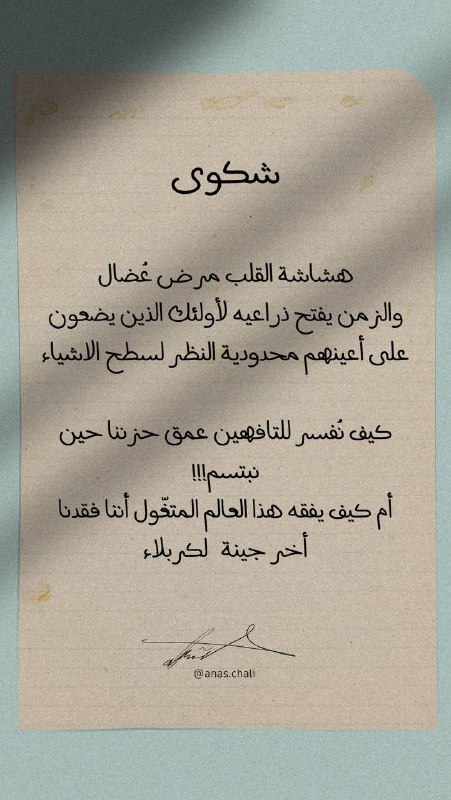 شكوى
هشاشة القلب مرض عُضال
والزمن يفتح ذراعيه لأولئك الذين يضعون
على أعينهم محدودية النظر لسطح الاشياء
كيف نُفسر للتافهين عمق حزننا حين
نبتسم!!!
أم كيف يفقه هذا العالم المتغّول أننا فقدنا
أخر جينة لكربلاء
@anas.chali